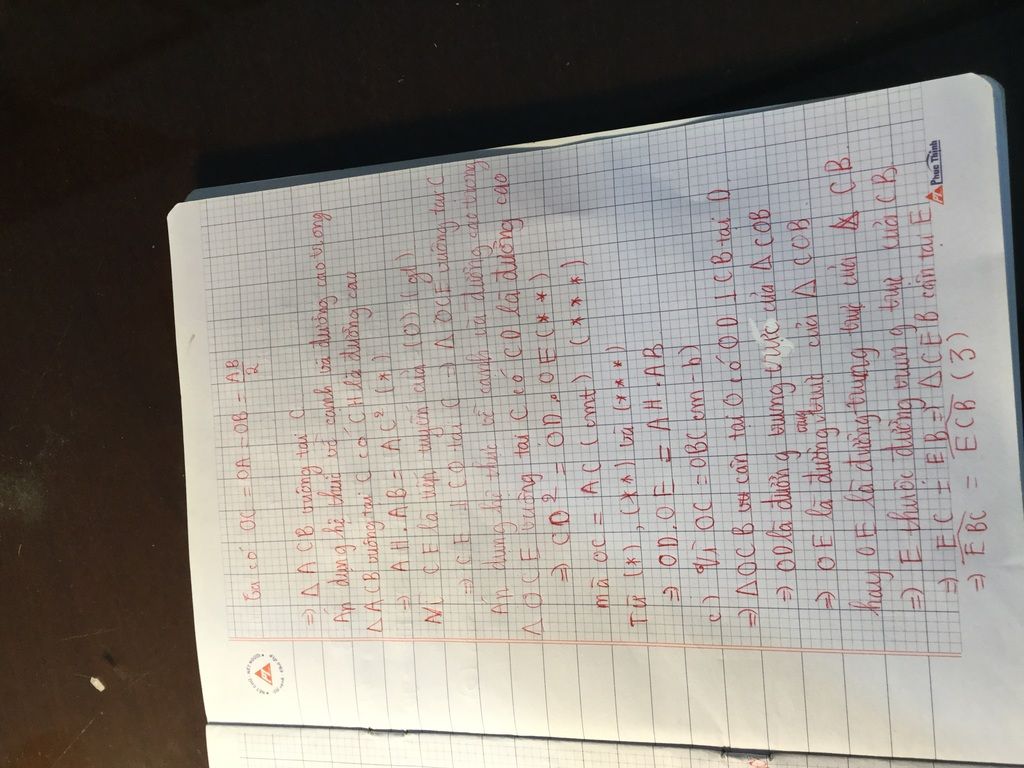 Ta có OC = OA = OB = AB/2
=> ΔACB vuông tại C
Áp dụng hệ thức về cạnh và đường cao trong
ΔACB vuông tại C có CH là đường cao
=> AH.AB = AC² (*)
Vì CE là tiếp tuyến của (O) (gt)
=> CE ⊥ CO tại C => ΔOCE vuông tại C
Áp dụng hệ thức về cạnh và đường cao trong
ΔOCE vuông tại C có CD là đường cao
=> CO² = OD.OE (**)
mà OC = AC (cmt) (***)
Từ (*), (**) và (***)
=> OD.OE = AH.AB
c) Vì OC = OB (cm-b)
=> ΔOCB cân tại O có OD ⊥ CB tại D
=> OD là đường trung trực của ΔCOB
=> OE là đường trung trực của ΔCOB
hay OE là đường trung trực của CB
=> E thuộc đường trung trực của CB
=> EC = EB => ΔCEB cân tại E
=> EBC = ECB (3)
Phúc Thịnh